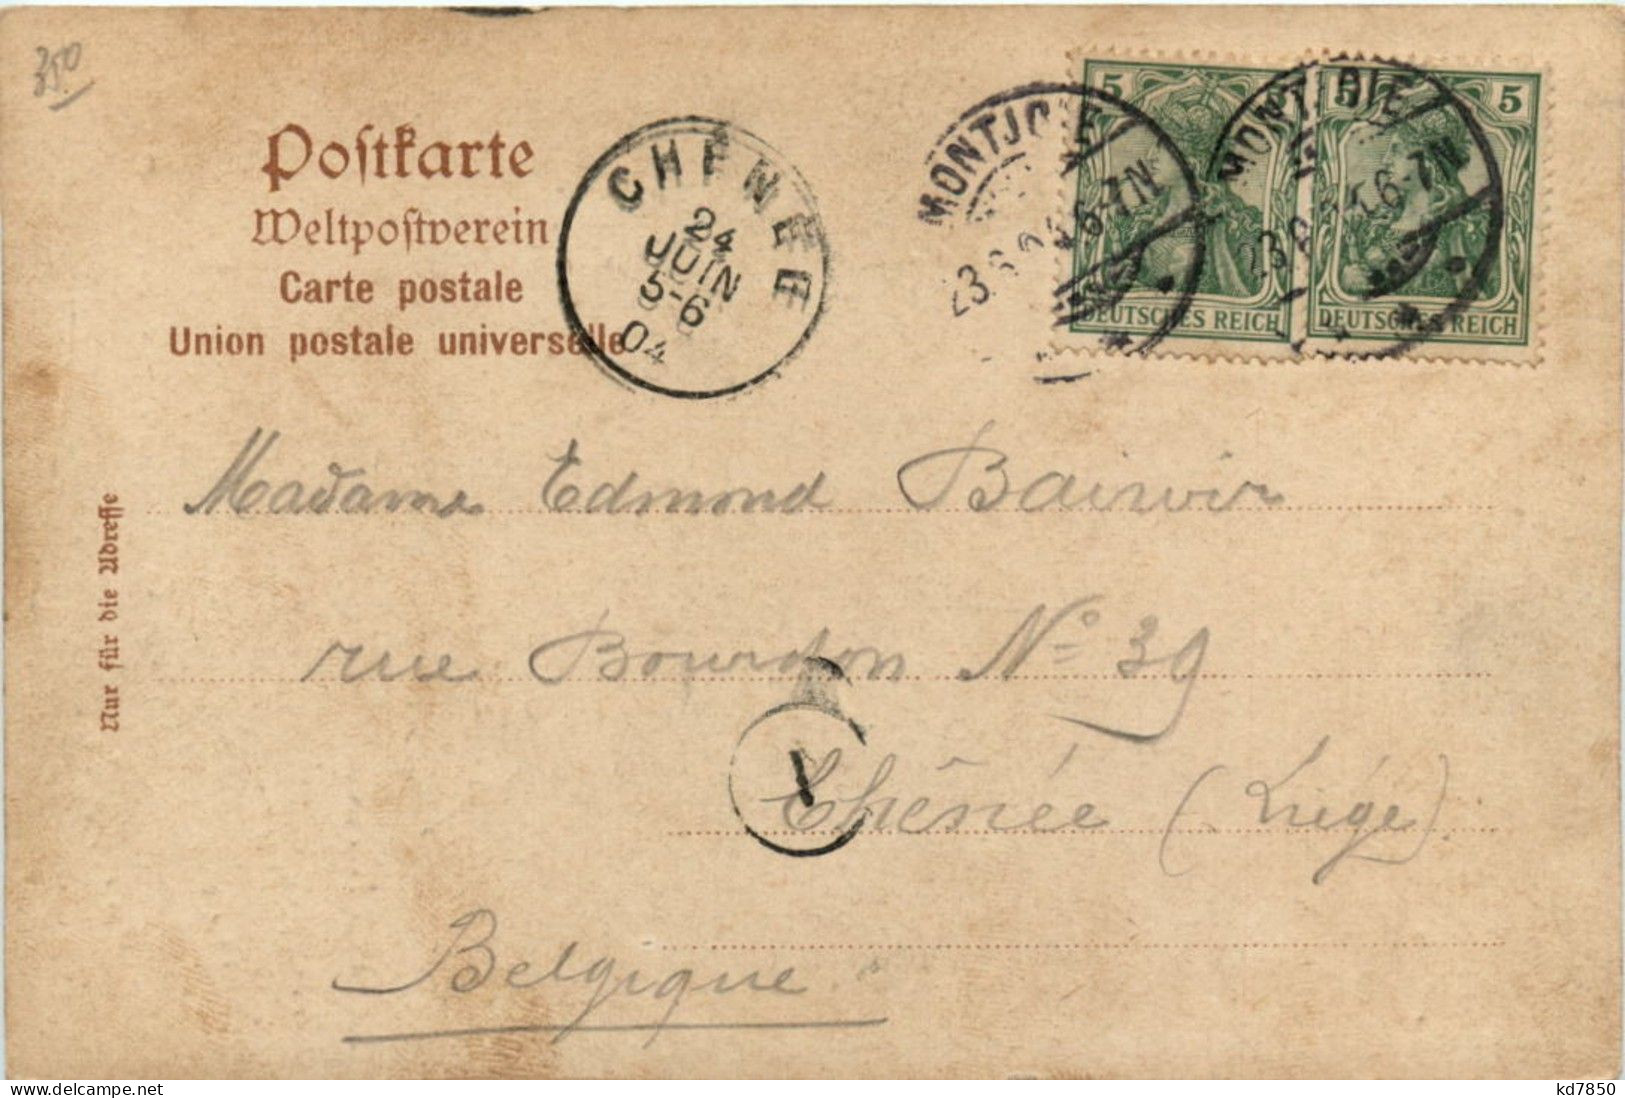 350
Postkarte
Weltpostverein
Carte postale
Union postale universelle
CHÊNÉE
24
JUIN
5-6
04
MONTJOIE
23.6.04.6-7N
MONTJOIE
23.6.04.6-7N
5
DEUTSCHES REICH
5 5
DEUTSCHES REICH
Nur für die Adresse
Madame Edmond Bairwir
rue Bourdon No 39
1
Chênée (Liége)
Belgique
delcampe.net
kd7850